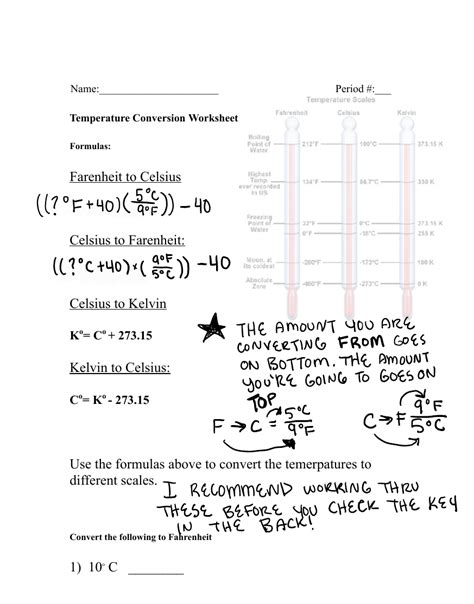 Name:____________________ Period #:___
Temperature Scales
Fahrenheit Celsius Kelvin
Temperature Conversion Worksheet
Boiling
Point of
Water
212°F 100°C 373.15 K
Formulas:
Farenheit to Celsius
Highest
Temp.
ever recorded
in US
134°F 56.7°C 330 K
((?°F+40)(5°C/9°F)) - 40
Freezing
Point of
Water
32°F 0°C 273.15 K
0°F -18°C 255 K
Celsius to Farenheit:
((?°C+40)×(9°F/5°C)) - 40
Moon, at
its coldest
-280°F -173°C 100 K
Absolute
Zero
-460°F -273°C 0 K
Celsius to Kelvin
K°= C° + 273.15
Kelvin to Celsius:
C°= K° - 273.15
THE AMOUNT YOU ARE
CONVERTING FROM GOES
ON BOTTOM. THE AMOUNT
YOU'RE GOING TO GOES ON
TOP
F → C = 5°C/9°F
C → F 9°F/5°C
Use the formulas above to convert the temerpatures to
different scales.
I RECOMMEND WORKING THRU
THESE BEFORE YOU CHECK THE KEY
IN THE BACK!
Convert the following to Fahrenheit
1) 10° C ________